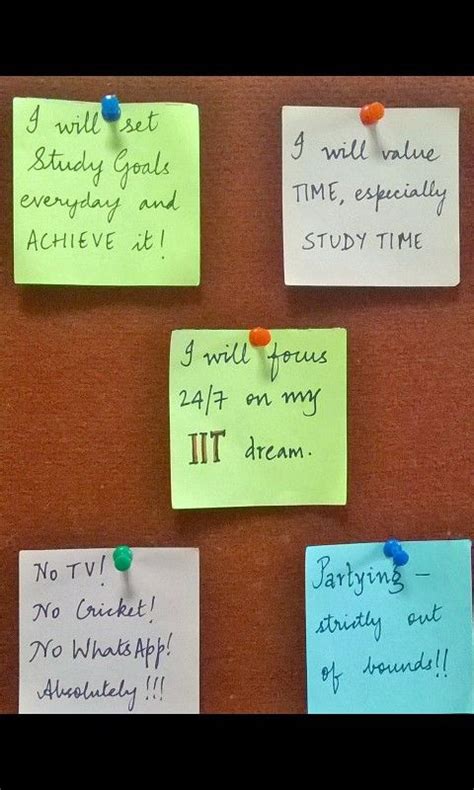 I will set
Study Goals
everyday and
ACHIEVE it!
I will value
TIME, especially
STUDY TIME
I will focus
24/7 on my
IIT dream.
No TV!
No Cricket!
No WhatsApp!
Absolutely!!!
Partying –
strictly out
of bounds!!